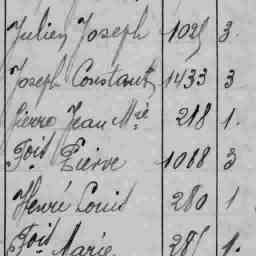 Julien Joseph 1025 3.
Joseph Constant 1433 3
Pierre Jean Mie 218 1.
Fois Pierre 1088 3
Henré Louis 280 1
Fois Marie 285 1.